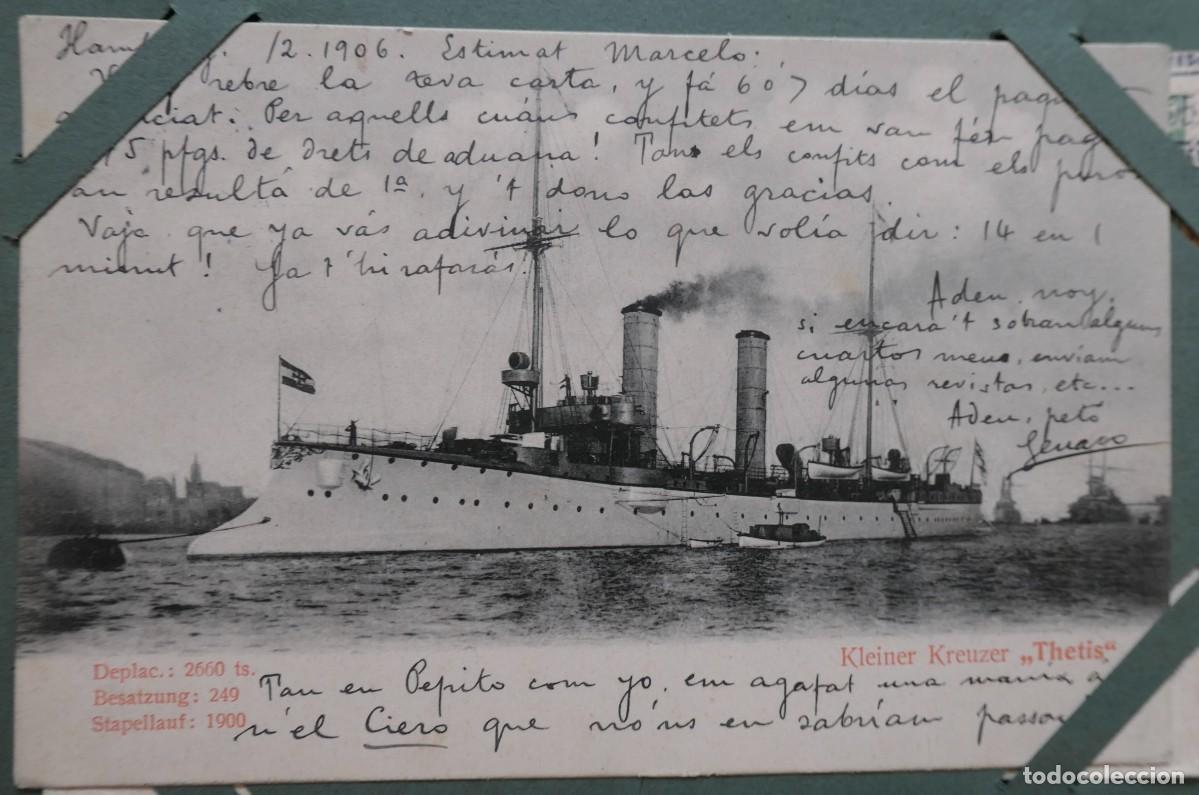 /2.1906. Estimat Marcelo:
rebre la teva carta, y fá 6 o 7 días el
Per aquells cuáns confitets em van fer
5 pfgs. de drets de aduana! Tan els confits com els
an resultá de 1ª, y 't dono las gracias.
Vaja que ya vás adivinar lo que volía dir: 14 en 1
minut! Ja t'hi
Adeu, noy,
si encara 't sobran alguns
cuartos meus, enviam
algunas revistas, etc...
Adeu, petó
Genaro
Kleiner Kreuzer „Thetis“
Deplac.: 2660 ts.
Besatzung: 249
Stapellauf: 1900
Tan en Pepito com yo, em agafat una manía a
n'el Ciero que nó'ns en sabríam
todocoleccion